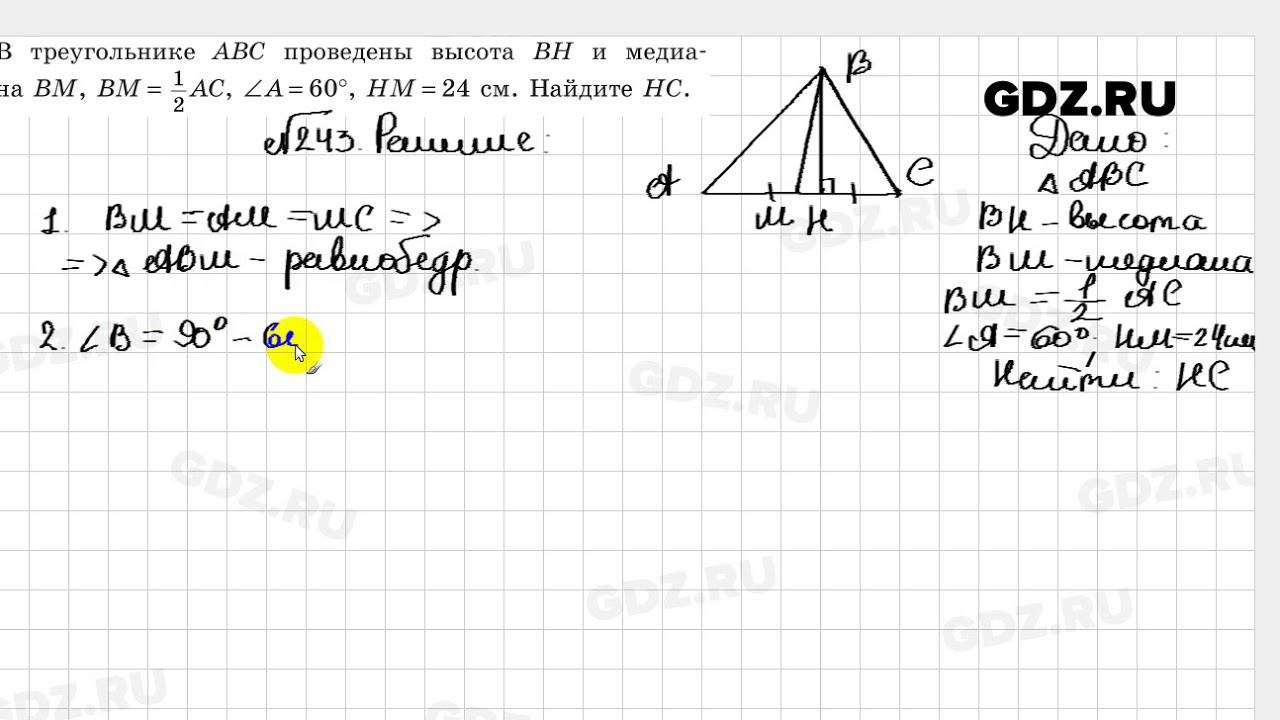 В треугольнике ABC проведены высота BH и медиа-
на BM, BM = 1/2 AC, ∠A = 60°, HM = 24 см. Найдите HC.
GDZ.RU
№243. Решение:
B
A
M H
C
Дано:
△ ABC
BH – высота
BM – медиана
BM = 1/2 AC
∠A = 60°. HM = 24см
Найти: HC
1. BM = AM = MC =>
=> △ ABM – равнобедр.
2. ∠B = 90° – 6
GDZ.RU
GDZ.RU
GDZ.RU
GDZ.RU
GDZ.RU
GDZ.RU
GDZ.RU
GDZ.RU
GDZ.RU
GDZ.RU